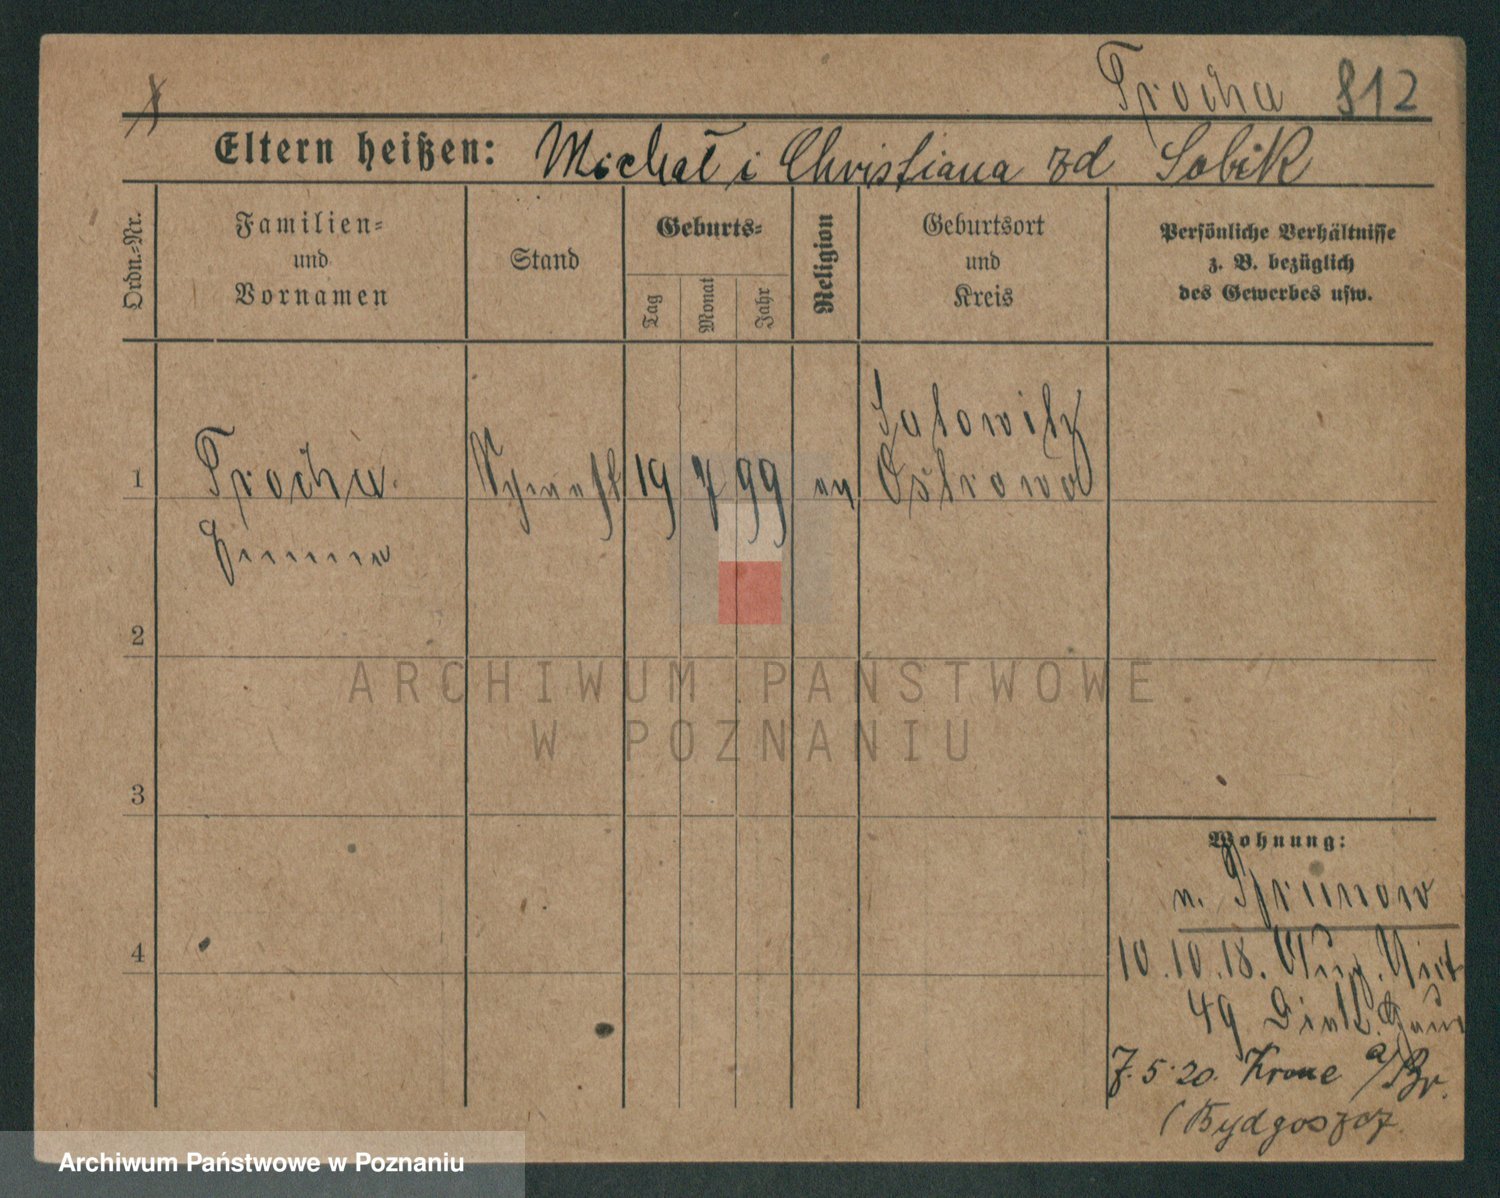 Procha 812
Eltern heißen: Michał i Christiana zd Sobik
Ordn.-Nr.
Familien-
und
Vornamen
Stand
Geburts-
Tag
Monat
Jahr
Religion
Geburtsort
und
Kreis
Persönliche Verhältnisse
z. B. bezüglich
des Gewerbes usw.
1
Procha
19 7 99
Ostrowo
2
3
4
ARCHIWUM PAŃSTWOWE
W POZNANIU
Wohnung:
n.
10.10.18. Aug.
49
7.5.20. Krone a/Br.
(Bydgoszcz
Archiwum Państwowe w Poznaniu